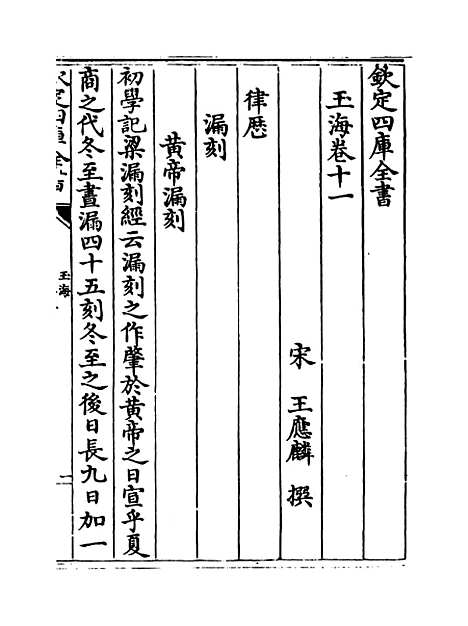 欽定四庫全書
玉海卷十一
宋 王應麟 撰
律厯
漏刻
黄帝漏刻
初學記梁漏刻經云漏刻之作肇於黄帝之日宣乎夏
商之代冬至晝漏四十五刻冬至之後日長九日加一
玉海